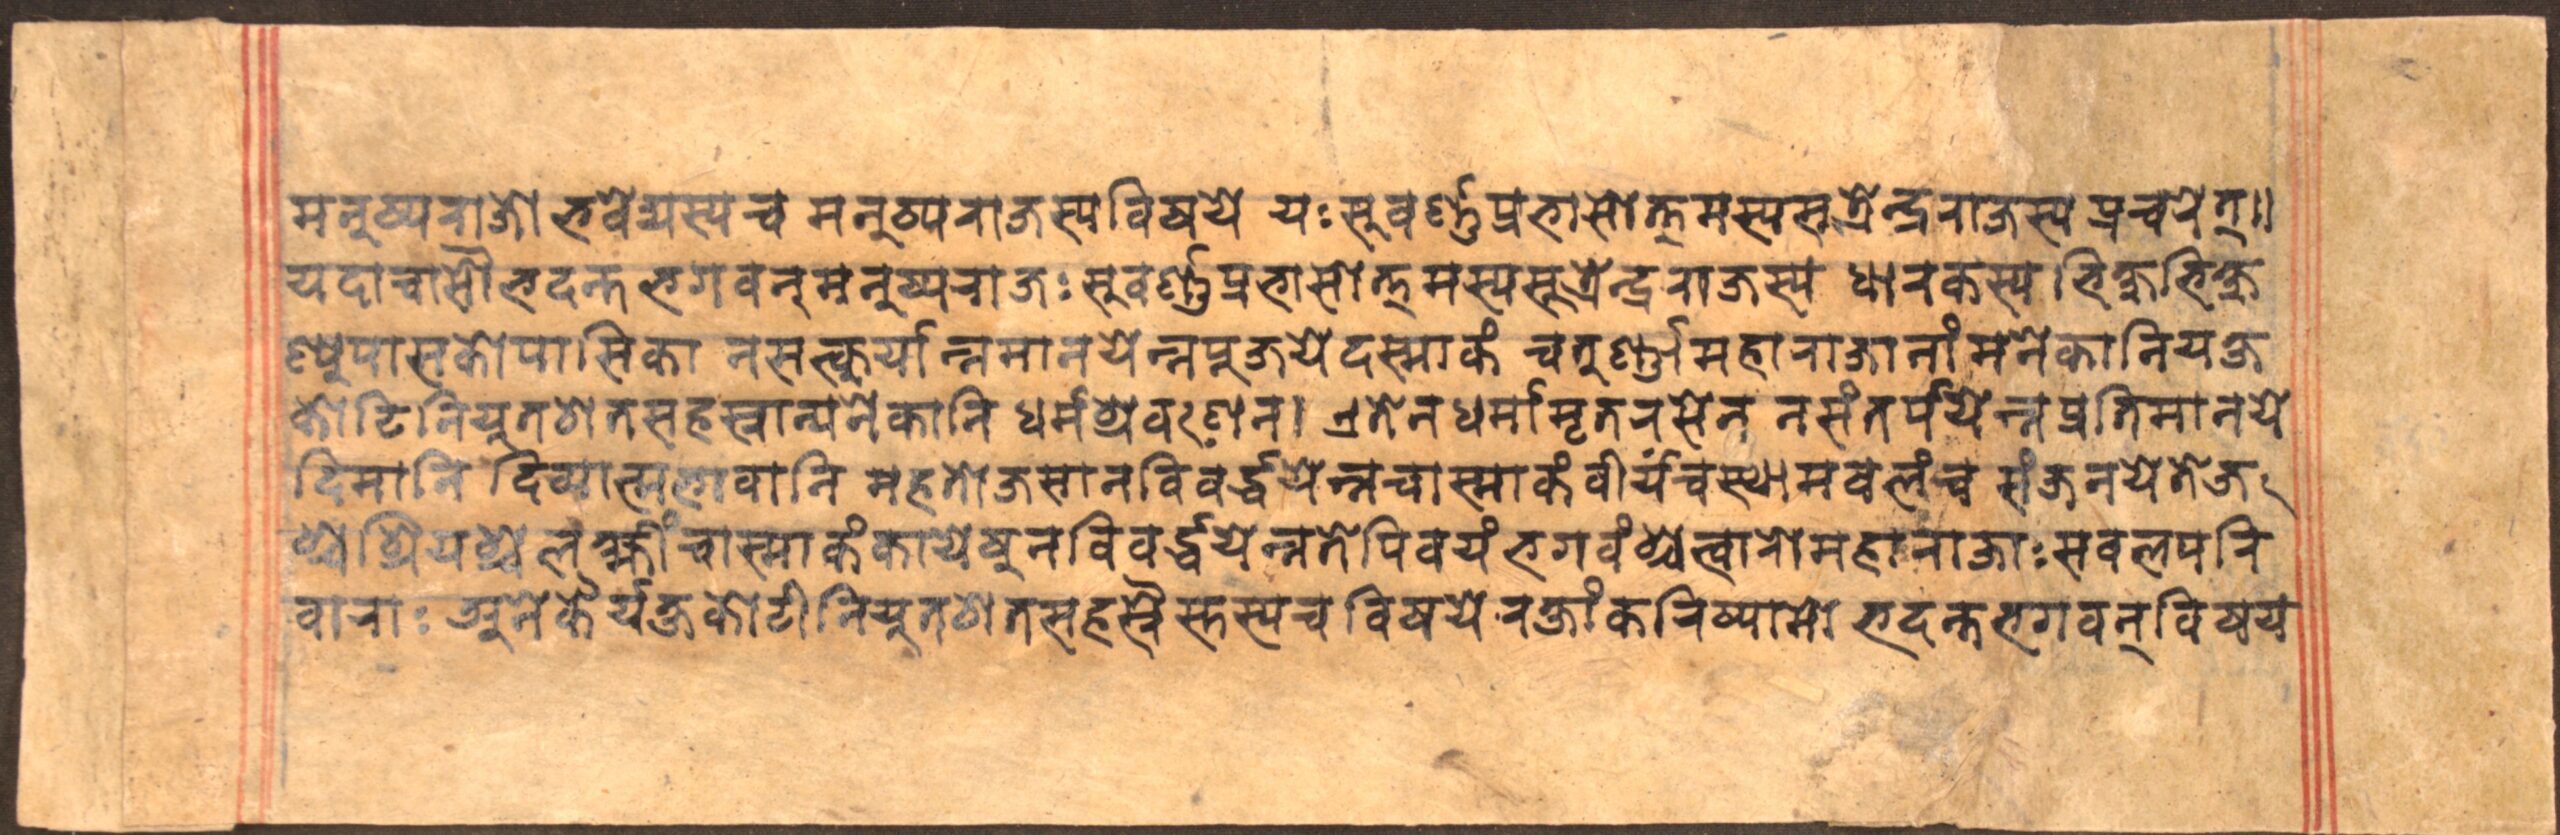 मनुष्यराजो भवेद्यस्य च मनुष्यराजस्य विषये यः सुवर्ण्णप्रभासोत्तमस्य सूत्रेन्द्रराजस्य प्रचरेत्॥
यदा चासौ भदन्त भगवन् मनुष्यराजः सुवर्ण्णप्रभासोत्तमस्य सूत्रेन्द्रराजस्य धारकस्य भिक्षुभिक्षु
ण्युपासकोपासिका न सत्कुर्यान्न मानयेन्न पूजयेदस्माकं चतुर्ण्णां महाराजानांमनेकानि यक्ष
कोटिनियुतशतसहस्रान्यनेकानि धर्मश्रवणेन। एतेन धर्मामृतरसेन न संतर्पयेन्न प्रतिमानये
दिमानि दिव्यात्मभावानि महतोजसा न विवर्द्धयेन्न चास्माकं वीर्यं च स्थाम बलं च संजनयेतेज
श्च श्रियश्च लक्ष्मीं चास्माकं कायेषु न विवर्द्धयेन्न तेपि वयं भगवंश्चत्वारो महाराजाः सबलपरि
वाराः अनेकैर्यक्षकोटीनियुतशतसहस्रैस्तस्य च विषये रक्षां करिष्यामो भदन्त भगवन् विषय